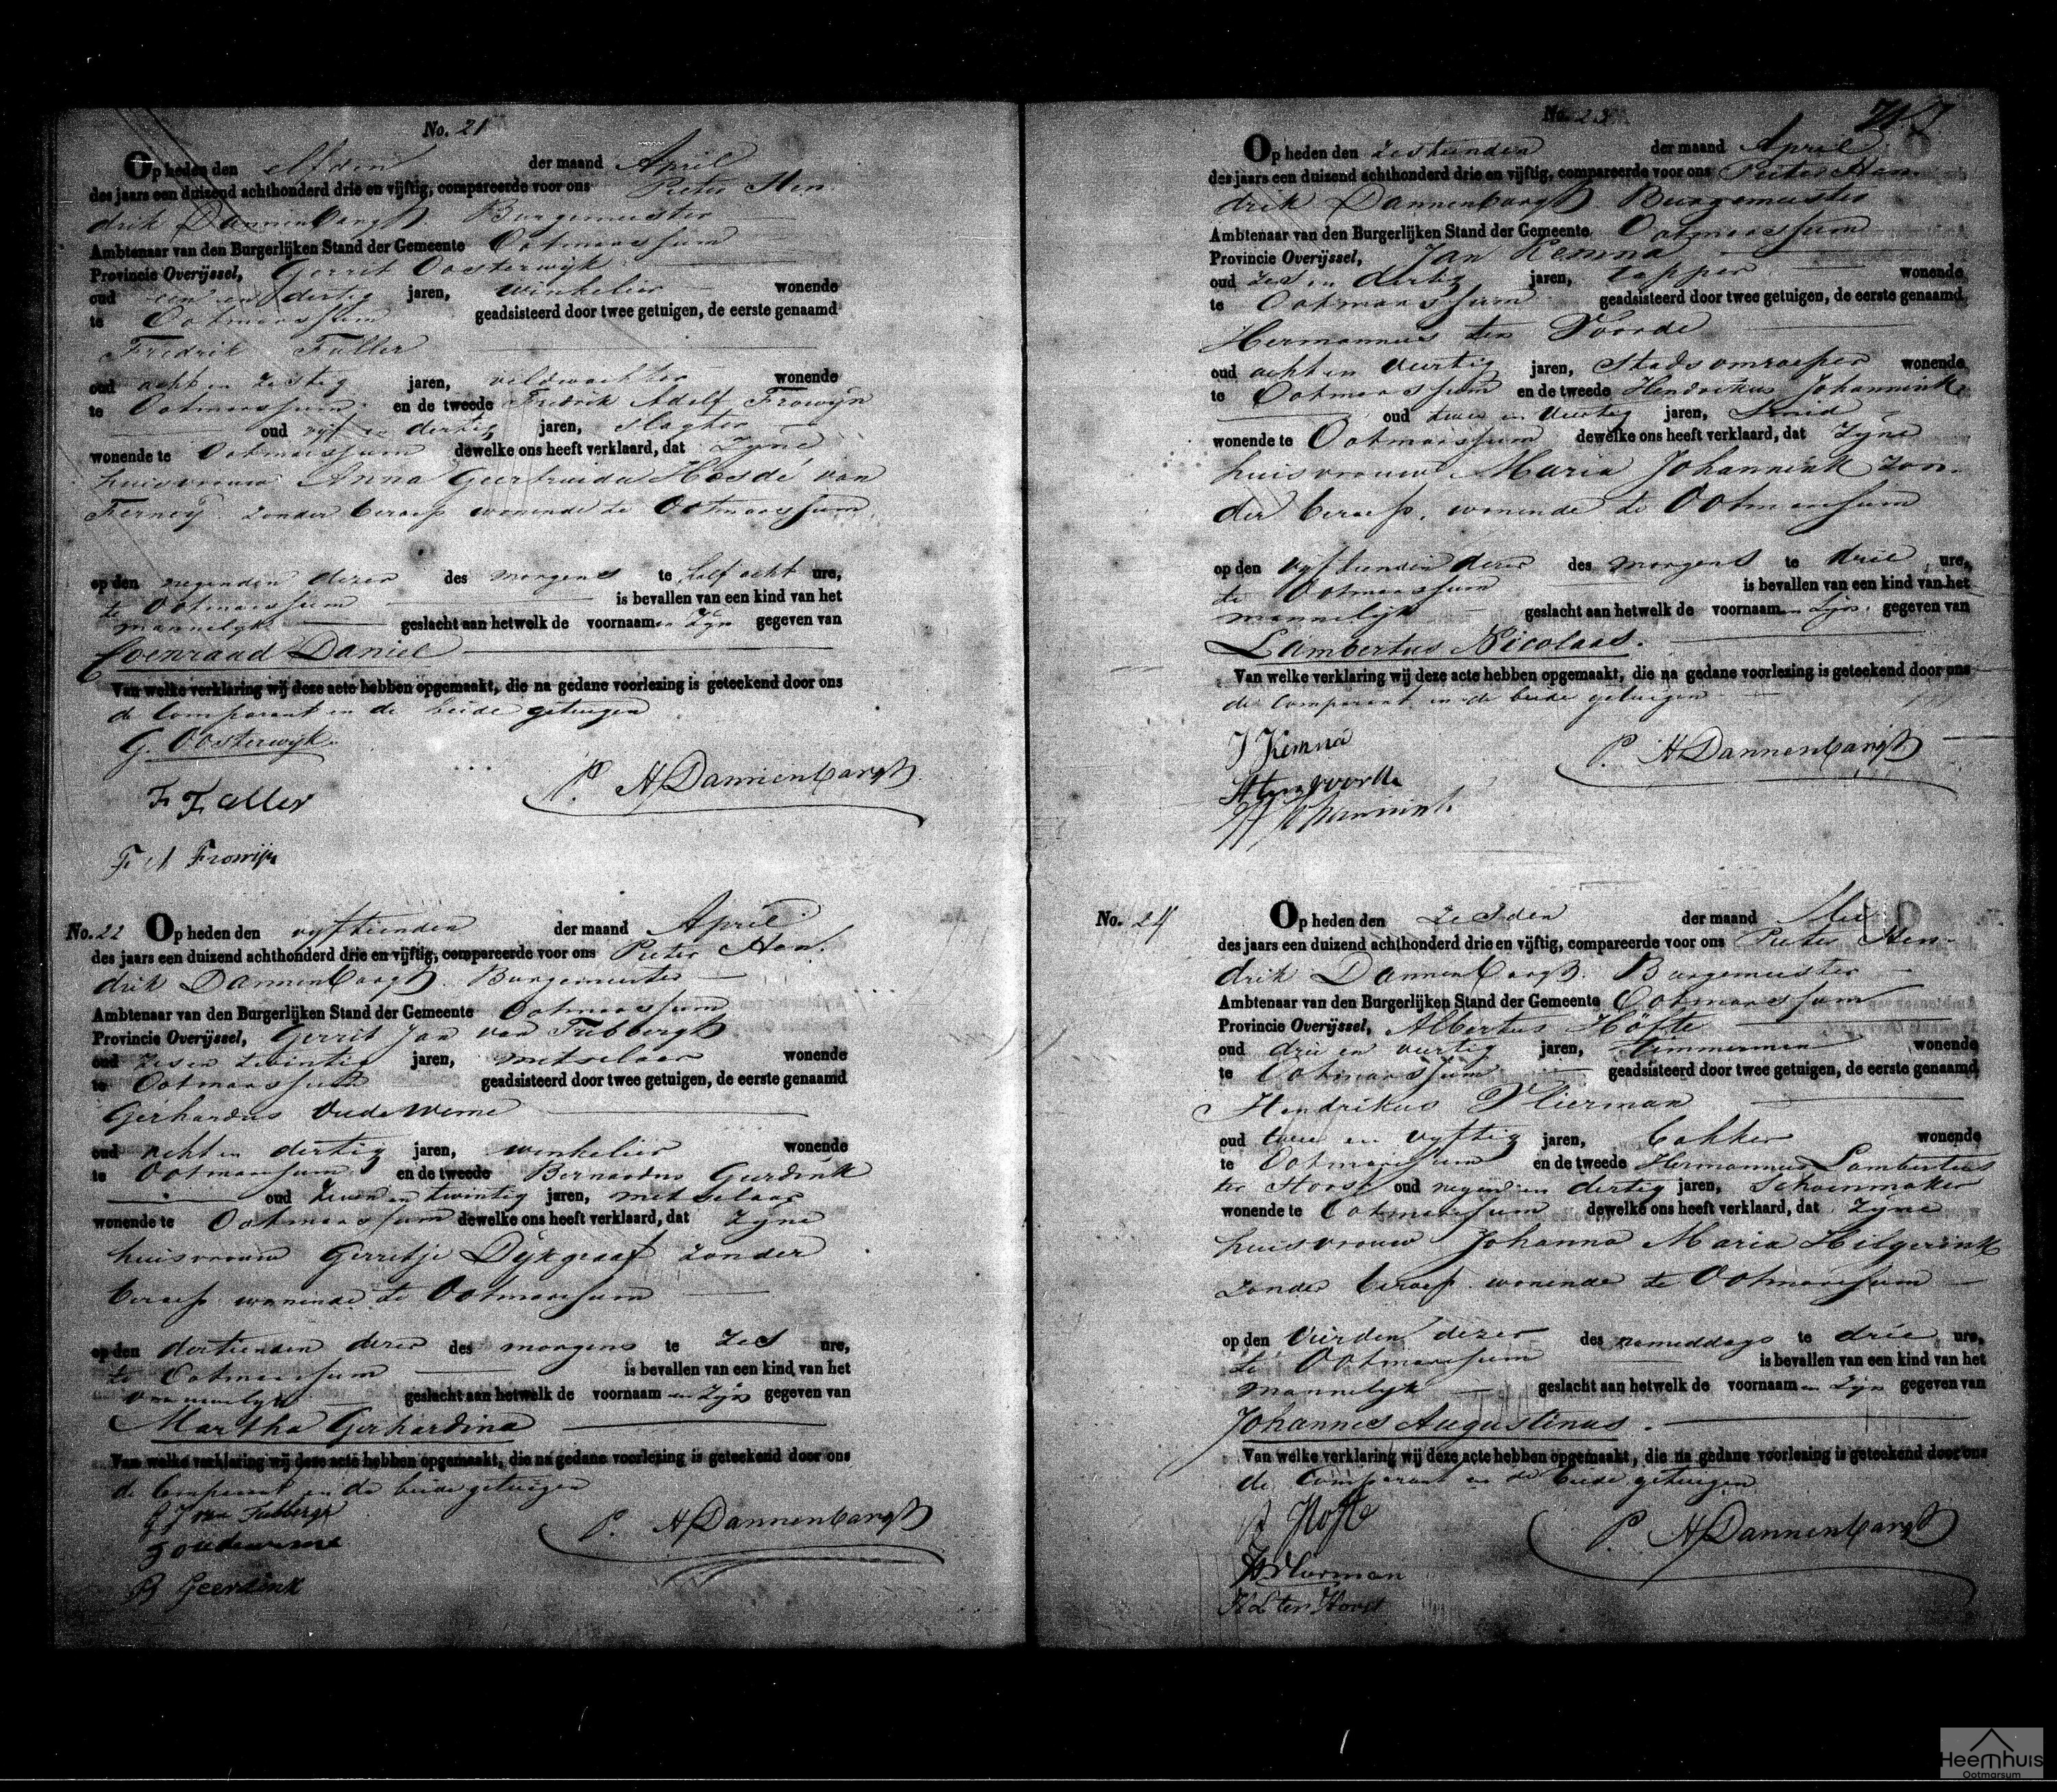 No. 21
Op heden den elfden der maand April
des jaars een duizend achthonderd drie en vijftig, compareerde voor ons Pieter Hen
drik Dannenbargh Burgemeester
Ambtenaar van den Burgerlijken Stand der Gemeente Ootmarssum
Provincie Overijssel, Gerrit Oosterwijk
oud een en dertig jaren, winkelier wonende
te Ootmarssum geadsisteerd door twee getuigen, de eerste genaamd
Fredrik Faller
oud acht en zestig jaren, veldwachter wonende
te Ootmarssum en de tweede Fredrik Adolf Frowijn
oud vijf en dertig jaren, slagter
wonende te Ootmarssum dewelke ons heeft verklaard, dat zijne
huisvrouw Anna Geertruida Hosdé van
Ferneij zonder beroep wonende te Ootmarssum
op den negenden dezer des morgens te half acht ure,
te Ootmarssum is bevallen van een kind van het
mannelijk geslacht aan hetwelk de voornaamen zijn gegeven van
Coenraad Daniel
Van welke verklaring wij deze acte hebben opgemaakt, die na gedane voorlezing is geteekend door ons
de Comparant en de beide getuigen
G. Oosterwijk
P. H Dannenbargh
F. Faller
F. A Frowijn
No. 22 Op heden den vijftienden der maand April
des jaars een duizend achthonderd drie en vijftig, compareerde voor ons Pieter Hen
drik Dannenbargh Burgemeester
Ambtenaar van den Burgerlijken Stand der Gemeente Ootmarssum
Provincie Overijssel, Gerrit Jan van Tubbergh
oud zes en twintig jaren, metselaar wonende
te Ootmarssum geadsisteerd door twee getuigen, de eerste genaamd
Gerhardus Oude Weme
oud acht en dertig jaren, winkelier wonende
te Ootmarssum en de tweede Bernardus Geerdink
oud zeven en twintig jaren, metselaar
wonende te Ootmarssum dewelke ons heeft verklaard, dat zijne
huisvrouw Gerretje Dijkgraaf zonder
beroep wonende te Ootmarssum
op den dertienden dezer des morgens te zes ure,
te Ootmarssum is bevallen van een kind van het
vrouwelijk geslacht aan hetwelk de voornaam en zijn gegeven van
Martha Gerhardina
Van welke verklaring wij deze acte hebben opgemaakt, die na gedane voorlezing is geteekend door ons
de Comparant en de beide getuigen
G J van Tubbergh
P. H Dannenbargh
G oudeweme
B Geerdink
No. 23
Op heden den zestienden der maand April
des jaars een duizend achthonderd drie en vijftig, compareerde voor ons Pieter Hen
drik Dannenbargh Burgemeester
Ambtenaar van den Burgerlijken Stand der Gemeente Ootmarssum
Provincie Overijssel, Jan Kemna
oud zes en dertig jaren, tapper wonende
te Ootmarssum geadsisteerd door twee getuigen, de eerste genaamd
Hermannus ten Voorde
oud acht en veertig jaren, Stadsomroeper wonende
te Ootmarssum en de tweede Hendrikus Johannink
oud twee en veertig jaren, Smid
wonende te Ootmarssum dewelke ons heeft verklaard, dat zijne
huisvrouw Maria Johannink zon
der beroep, wonende te Ootmarssum
op den vijftienden dezer des morgens te drie ure,
te Ootmarssum is bevallen van een kind van het
mannelijk geslacht aan hetwelk de voornaamen zijn gegeven van
Lambertus Nicolaas.
Van welke verklaring wij deze acte hebben opgemaakt, die na gedane voorlezing is geteekend door ons
de Comparant en de beide getuigen
J Kemna
P. H Dannenbargh
H ten voorde
H Johannink
No. 24 Op heden den zesden der maand Mei
des jaars een duizend achthonderd drie en vijftig, compareerde voor ons Pieter Hen
drik Dannenbargh Burgemeester
Ambtenaar van den Burgerlijken Stand der Gemeente Ootmarssum
Provincie Overijssel, Albertus Höfte
oud drie en veertig jaren, timmerman wonende
te Ootmarssum geadsisteerd door twee getuigen, de eerste genaamd
Hendrikus Vlierman
oud twee en vijftig jaren, bakker wonende
te Ootmarssum en de tweede Hermannus Lambertus
ter Horst oud negen en dertig jaren, Schoenmaker
wonende te Ootmarssum dewelke ons heeft verklaard, dat zijne
huisvrouw Johanna Maria Hilgerink
zonder beroep wonende te Ootmarssum
op den vierden dezer des nameddags te drie ure,
te Ootmarssum is bevallen van een kind van het
mannelijk geslacht aan hetwelk de voornaamen zijn gegeven van
Johannes Augustinus.
Van welke verklaring wij deze acte hebben opgemaakt, die na gedane voorlezing is geteekend door ons
de Comparant en de beide getuigen
A Hofte
P. H Dannenbargh
H Vlierman
H L ter Horst
Heemhuis
Ootmarsum